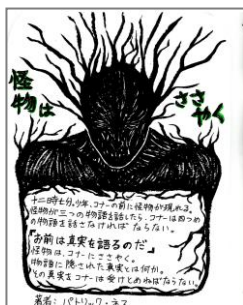 怪物は
ささやく
十二時七分。少年、コナーの前に怪物が現れる。
怪物が三つの物語を話したら、コナーは四つめ
の物語を話さなければならない。
「お前は真実を語るのだ」
怪物は、コナーにささやく。
物語に隠された真実とは何か。
その真実をコナーは受けとめねばならない。
著者：パトリック・ネス